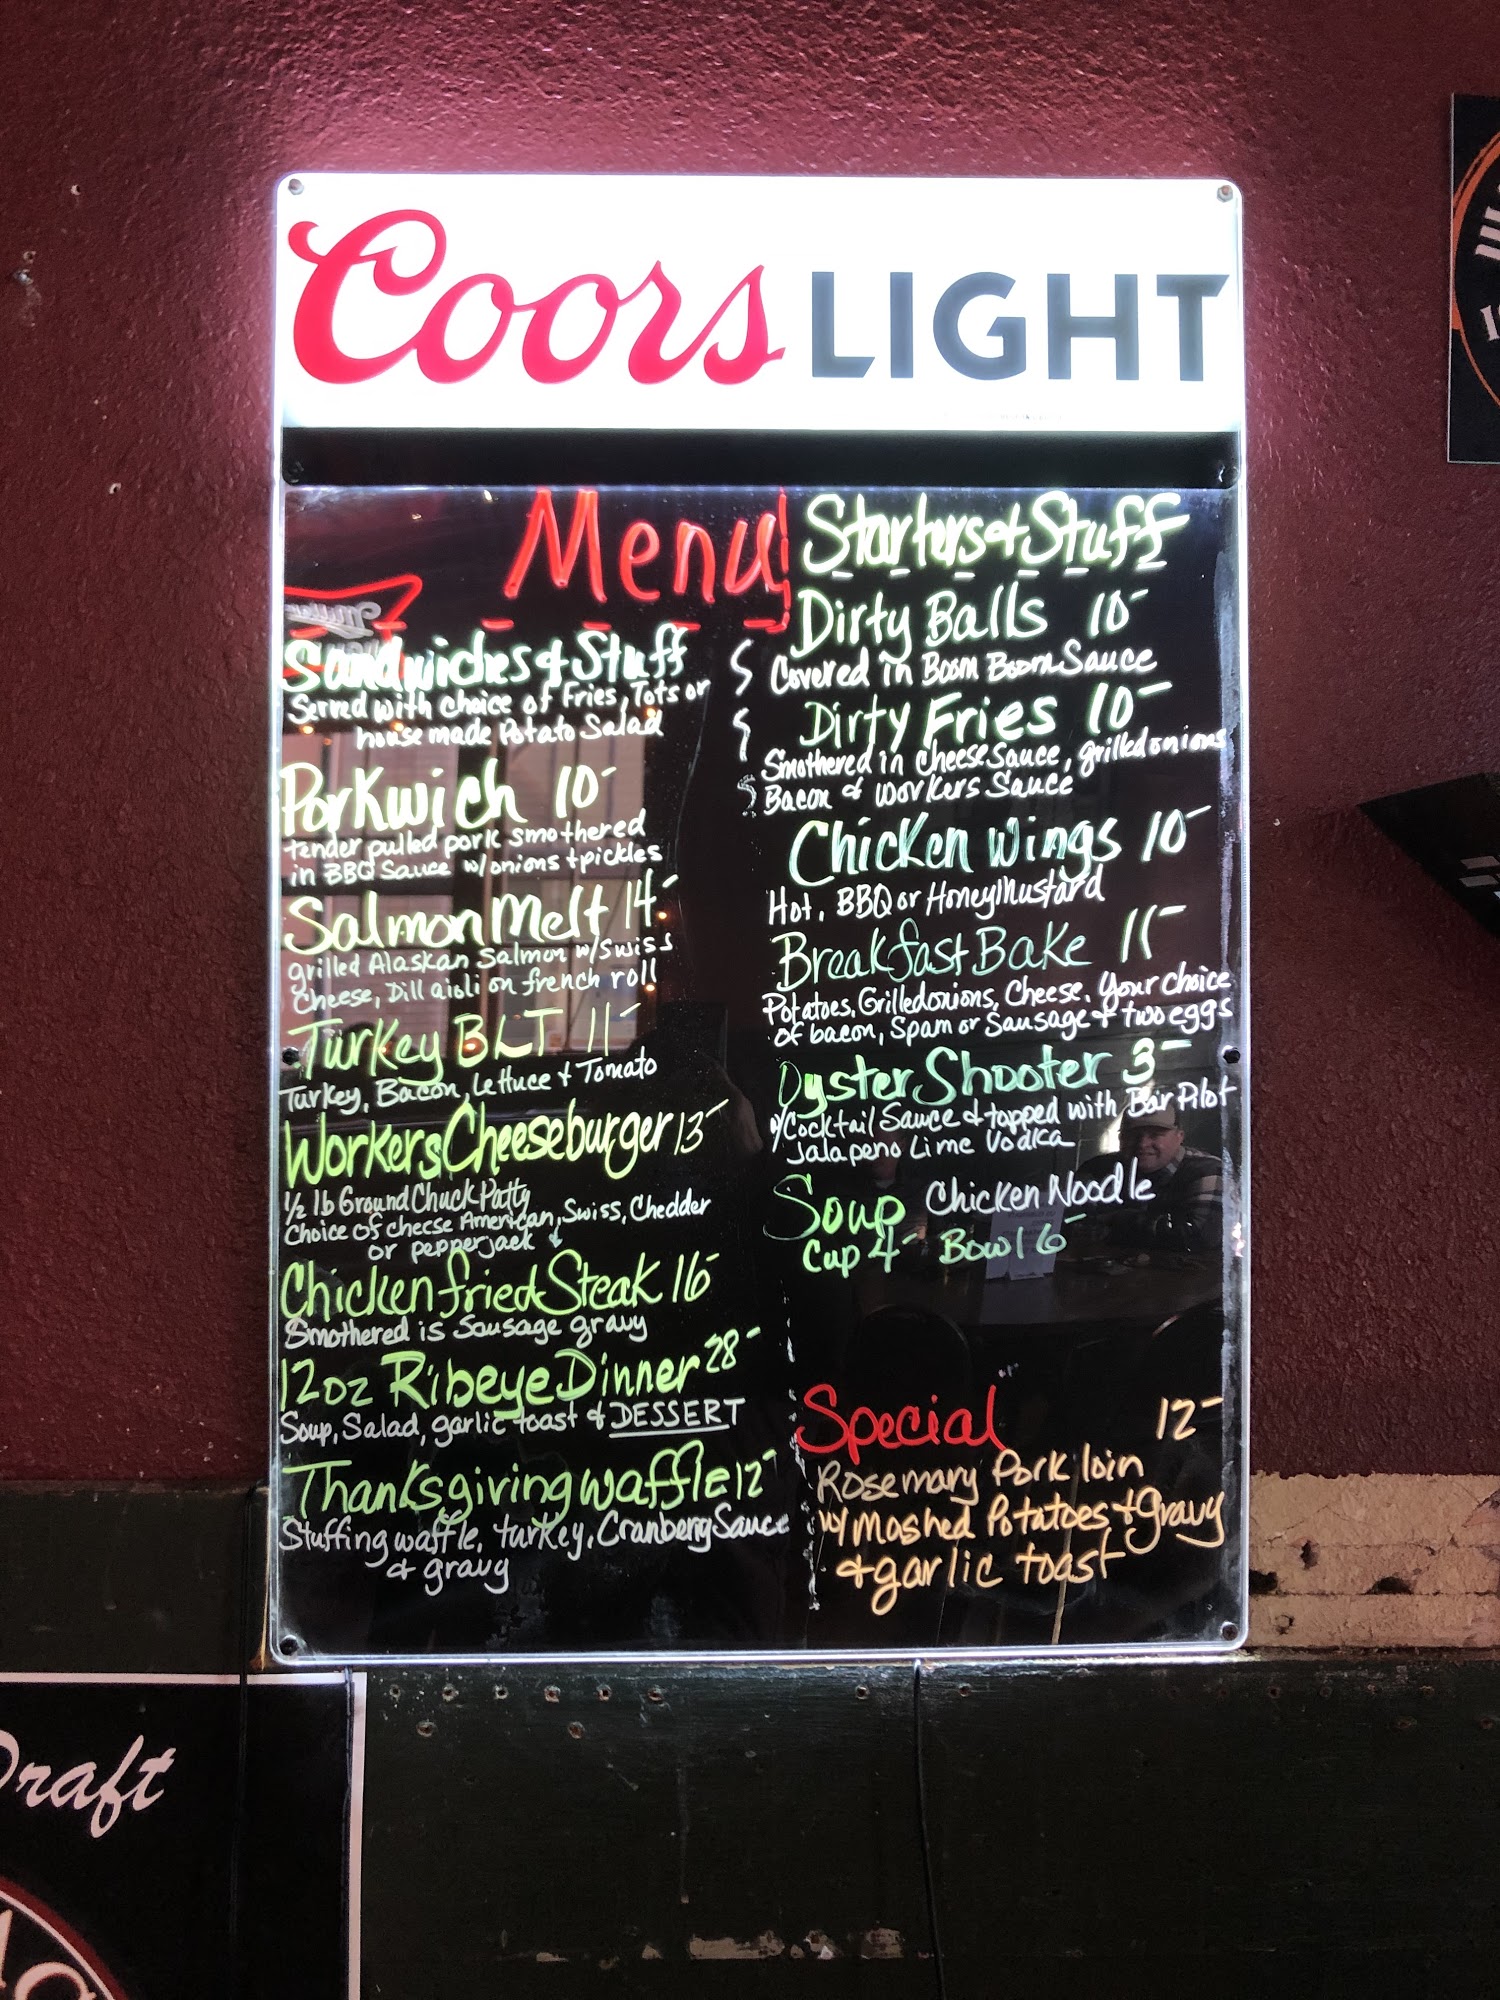 Coors LIGHT
Menu
Sandwiches & Stuff
Served with choice of Fries, Tots or
house made Potato Salad
Porkwich 10-
tender pulled pork smothered
in BBQ Sauce w/onions + pickles
Salmon Melt 14-
grilled Alaskan Salmon w/Swiss
Cheese, Dill aioli on french roll
Turkey BLT 11-
Turkey, Bacon, Lettuce + Tomato
Workers Cheeseburger 13-
1/2 lb Ground Chuck Patty
Choice of cheese American, Swiss, Chedder
or pepperjack
Chicken fried Steak 16-
Smothered is Sausage gravy
12oz Ribeye Dinner 28-
Soup, Salad, garlic toast & DESSERT
Thanksgiving waffle 12-
Stuffing waffle, turkey, Cranberry Sauce
& gravy
Starters & Stuff
Dirty Balls 10-
Covered in Boom Boom Sauce
Dirty Fries 10-
Smothered in cheese Sauce, grilled onions
Bacon & Workers Sauce
Chicken Wings 10-
Hot, BBQ or Honey Mustard
Breakfast Bake 11-
Potatoes, Grilled onions, Cheese, Your Choice
of bacon, Spam or Sausage + two eggs
Oyster Shooter 3-
w/Cocktail Sauce & topped with Bar Pilot
Jalapeno Lime Vodka
Soup Chicken Noodle
Cup 4- Bowl 6-
Special 12-
Rosemary Pork loin
w/ Mashed Potatoes + Gravy
& garlic toast
Draft